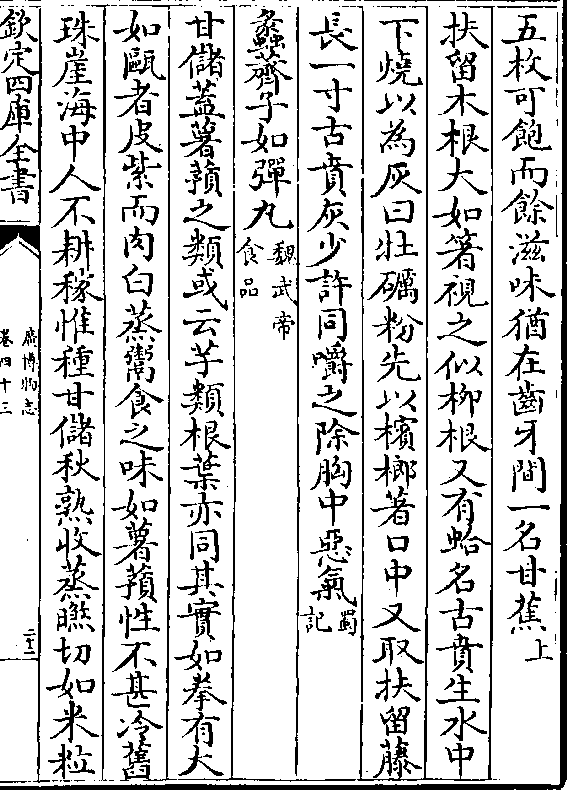 五枚可飽而餘滋味猶在齒牙間一名甘蕉上
扶留木根大如箸視之似柳根又有蛤名古賁生水中
下燒以為灰曰牡礪粉先以檳榔著口中又取扶留藤
長一寸古賁灰少許同嚼之除胸中惡氣蜀記
蠡薺子如彈丸魏武帝食品
甘儲蓋薯蕷之類或云芋類根葉亦同其實如拳有大
如甌者皮紫而肉白蒸鬻食之味如薯蕷性不甚冷舊
珠崖海中人不耕稼惟種甘儲秋熟收蒸曬切如米粒
欽定四庫全書
廣博物志
卷四十三